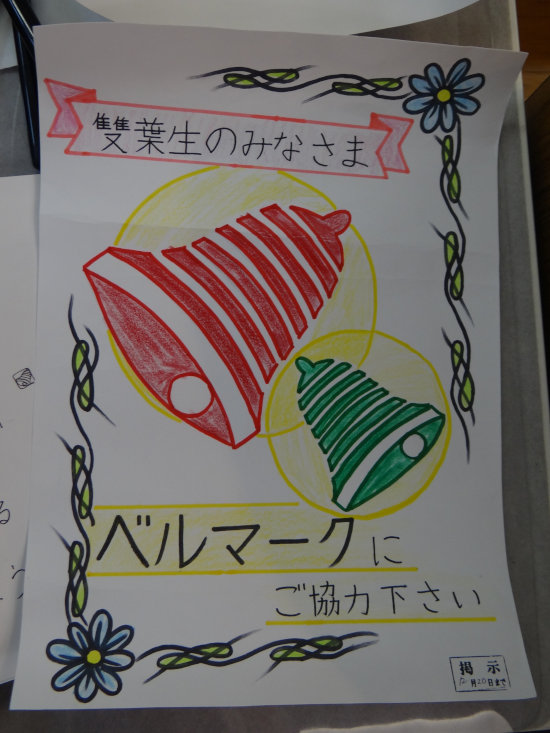 雙葉生のみなさま
ベルマークに
ご協力下さい
掲示
12月20日まで